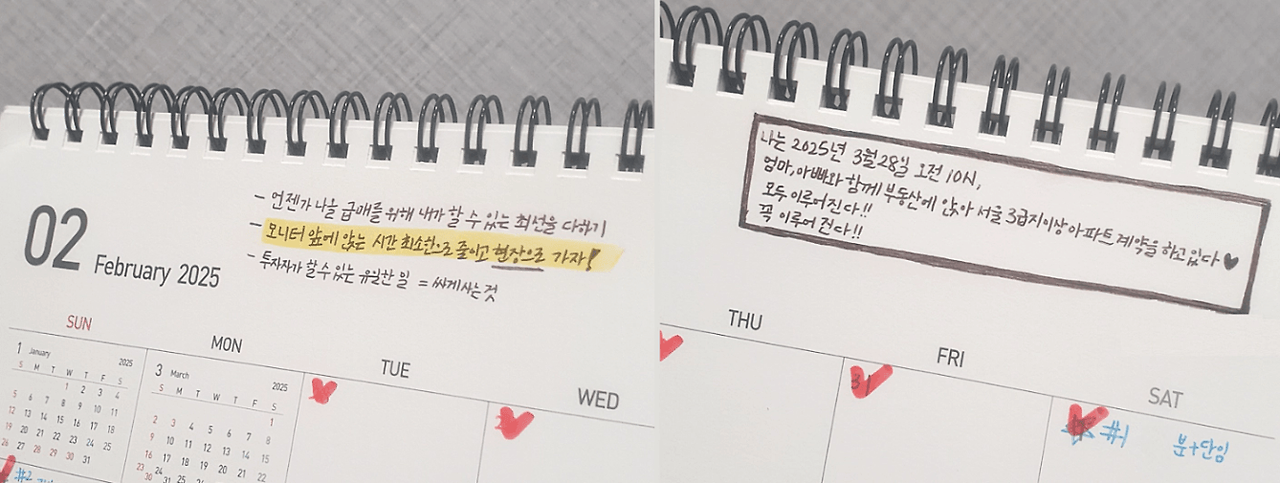 02 February 2025
- 언젠가 나올 급매를 위해 내가 할 수 있는 최선을 다하기
- 모니터 앞에 앉는 시간 최소한으로 줄이고 현장으로 가자!
- 투자자가 할 수 있는 유일한 일 = 싸게 사는 것
SUN MON TUE WED
1 January 2025
S M T W T F S
1 2 3 4
5 6 7 8 9 10 11
12 13 14 15 16 17 18
19 20 21 22 23 24 25
26 27 28 29 30 31
3 March 2025
S M T W T F S
1
2 3 4 5 6 7 8
9 10 11 12 13 14 15
16 17 18 19 20 21 22
23 24 25 26 27 28 29
30 31
#2
나는 2025년 3월 28일 오전 10시,
엄마, 아빠와 함께 부동산에 앉아 서울 3급지이상 아파트 계약을 하고있다 ♥
모두 이루어진다!!
꼭 이루어 진다!!
THU FRI SAT
31
#1 분+단임